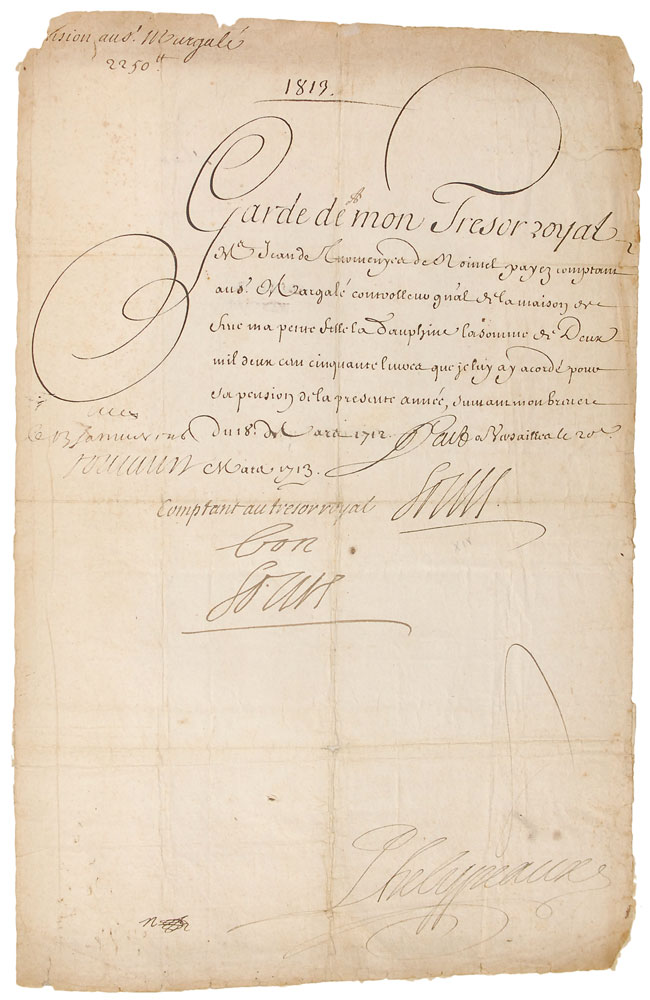 ension au s.r Margalé
2250.tt
1813.
Garde de mon Tresor royal
M.e Jean de Turmenyes de Nointel payez comptant
au s.r Margalé controlleur gñal de la maison de
feüe ma petite fille la Dauphine la somme de Deux
mil deux cen cinquante livres que je luy ay acordé pour
sa pension de la presente année, suivant mon brevet
du 18.e Mars 1712. Fait a Versailles le 20.e
Mars 1713.
Comptant au tresor royal
Louis
bon
Louis
XIV
Phelypeaux